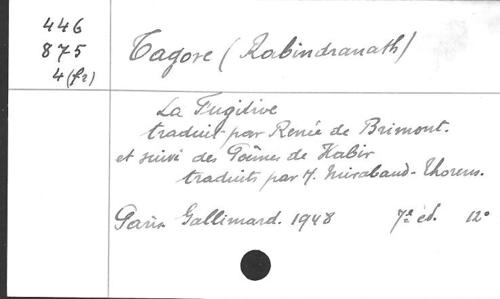 446
875
4 (fr)
Tagore (Rabindranath)
La Fugitive
traduit par Renée de Brimont.
et suivi des Poèmes de Kabir
traduits par H. Mirabaud-Thorens.
Paris. Gallimard. 1948 7e éd. 12°